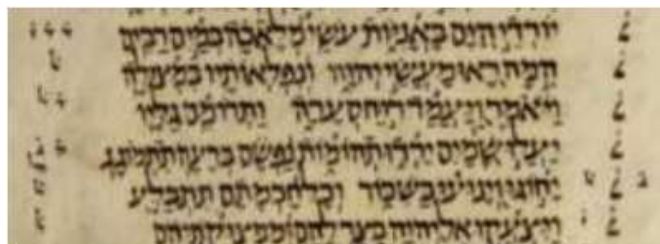 ׆ יורדי הים באניות עשי מלאכה במים רבים
׆ המה ראו מעשי יהוה ונפלאותיו במצולה
׆ ויאמר ויעמד רוח סערה ותרומם גליו
׆ יעלו שמים ירדו תהומות נפשם ברעה תתמוגג
׆ יחוגו וינועו כשכור וכל חכמתם תתבלע
׆ ויצעקו אל יהוה בצר להם וממצוקתיהם